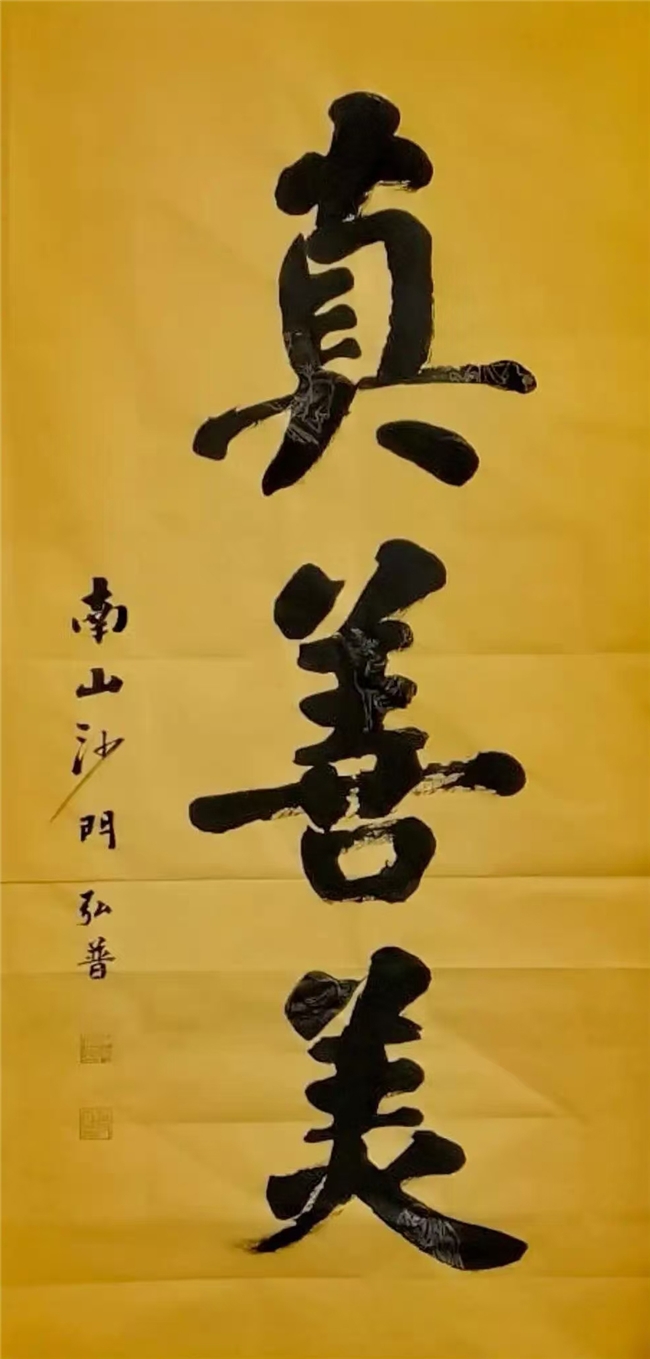 真善美
南山沙門弘普